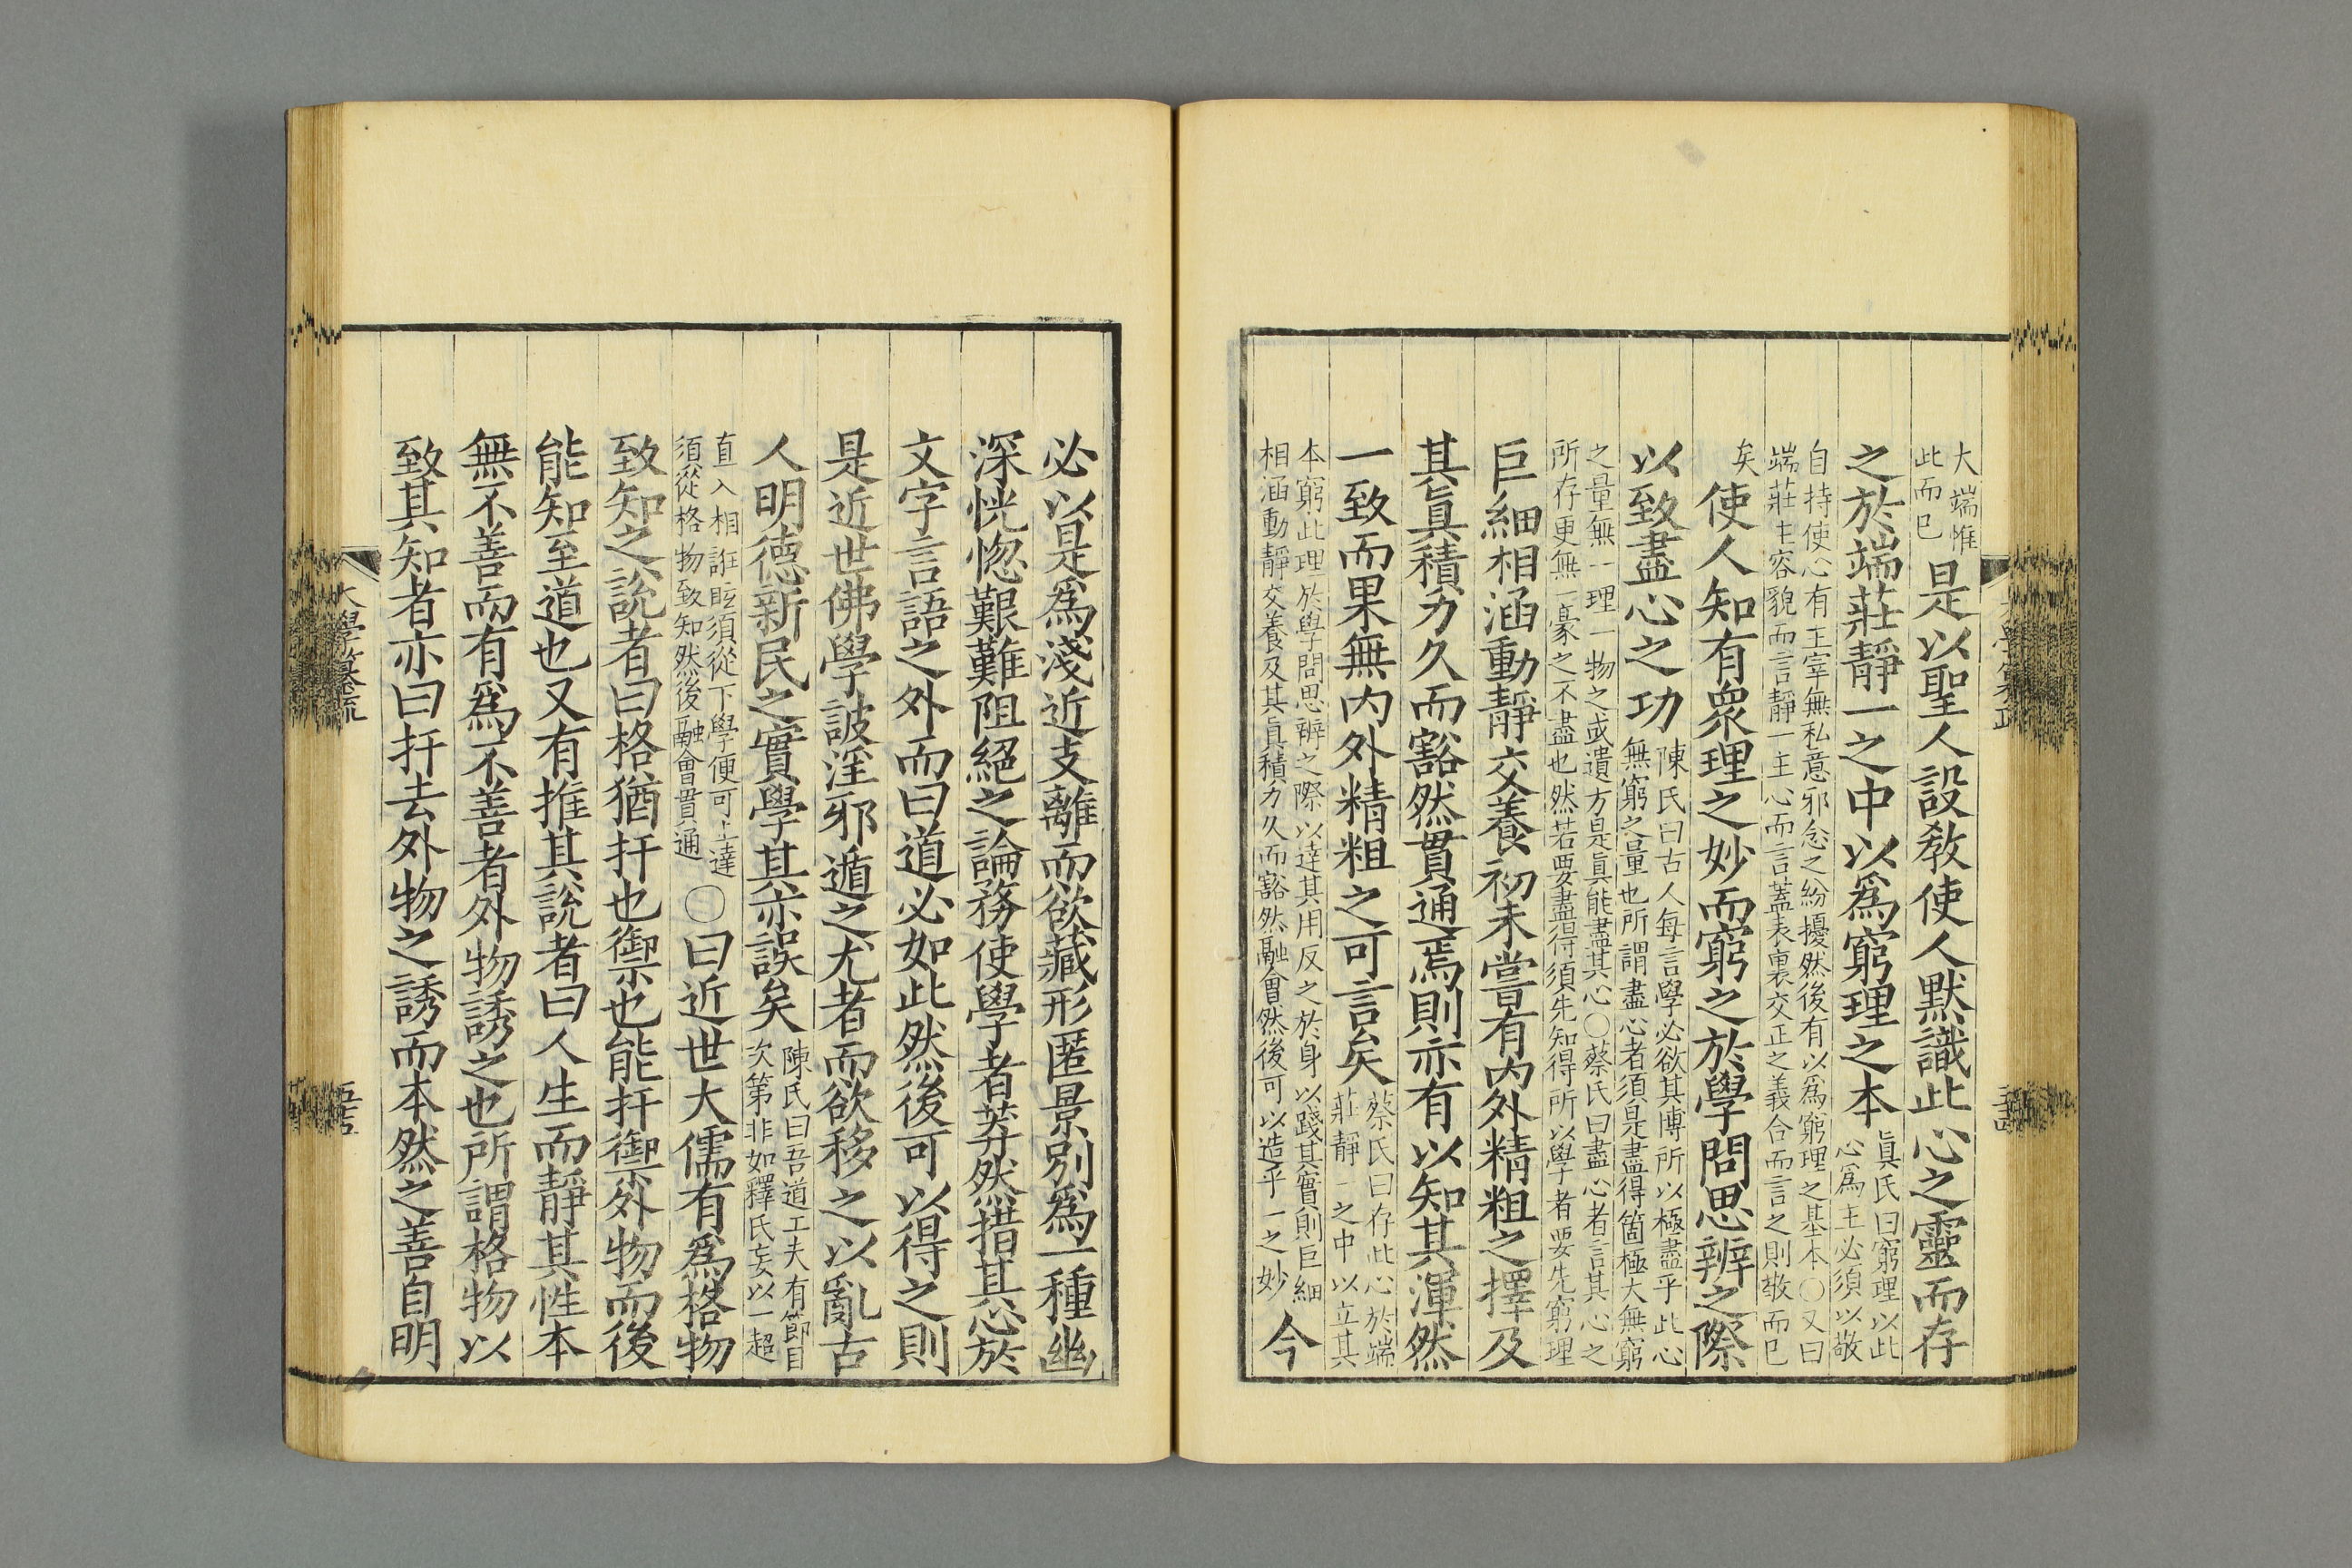 大端惟
此而已
是以聖人設教使人默識此心之靈而存
之於端莊靜一之中以爲窮理之本
眞氏曰窮理以此
心爲主必須以敬
自持使心有主宰無私意邪念之紛擾然後有以爲窮理之基本〇又曰
端莊主容貌而言靜一主心而言蓋表裏交正之義合而言之則敬而已
矣
使人知有衆理之妙而窮之於學問思辨之際
以致盡心之功
陳氏曰古人每言學必欲其博所以極盡乎此心
無窮之量也所謂盡心者須是盡得箇極大無窮
之量無一理一物之或遺方是眞能盡其心〇蔡氏曰盡心者言其心之
所存更無一豪之不盡也然若要盡得須先知得所以學者要先窮理
巨細相涵動靜交養初未嘗有內外精粗之擇及
其眞積力久而豁然貫通焉則亦有以知其渾然
一致而果無內外精粗之可言矣
蔡氏曰存此心於端
莊靜一之中以立其
本窮此理於學問思辨之際以達其用反之於身以踐其實則巨細
相涵動靜交養及其眞積力久而豁然融會然後可以造乎一之妙
今
必以是爲淺近支離而欲藏形匿景別爲一種幽
深恍惚艱難阻絕之論務使學者莽然措其心於
文字言語之外而曰道必如此然後可以得之則
是近世佛學詖淫邪遁之尤者而欲移之以亂古
人明德新民之實學其亦誤矣
陳氏曰吾道工夫有節目
次第非如釋氏妄以一超
直入相誑眩須從下學便可上達
須從格物致知然後融會貫通
〇曰近世大儒有爲格物
致知之說者曰格猶扞也禦也能扞禦外物而後
能知至道也又有推其說者曰人生而靜其性本
無不善而有爲不善者外物誘之也所謂格物以
致其知者亦曰扞去外物之誘而本然之善自明
大學纂疏